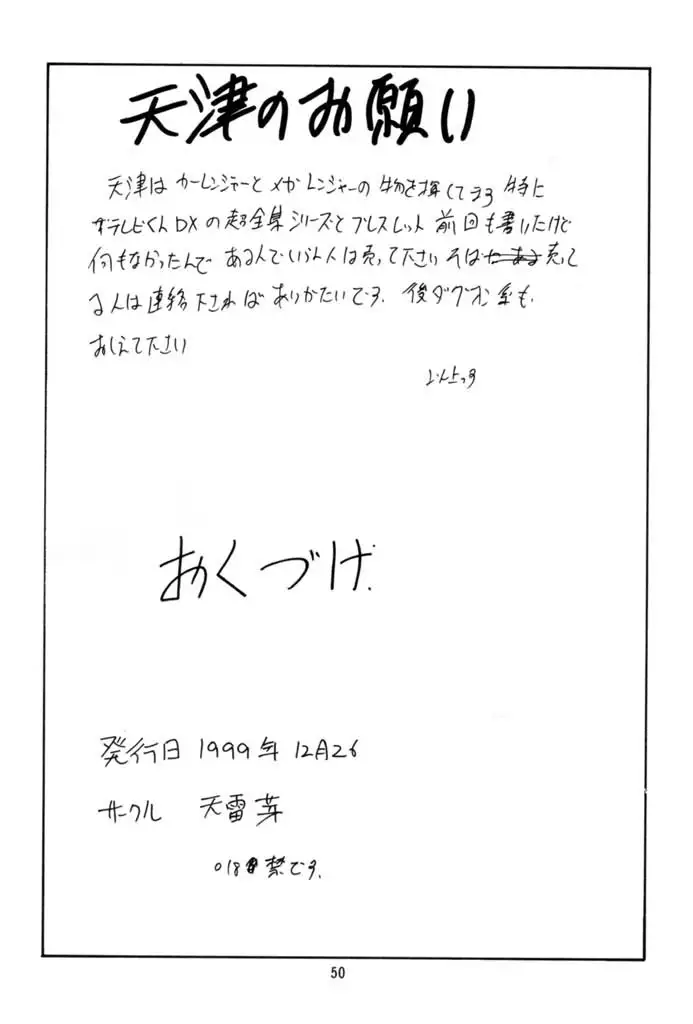 天津のお願い
天津は カーレンジャーと メガレンジャーの 物を探してヲる 特に
ザテレビくんDXの超全集シリーズとブレスレット 前回も書いたけど
何もなかったんで あるんでいらん人は売って下さい そば 売って
る人は連絡下されば ありがたいです. 後ダグオン系も
おしえて下さい
おくづけ.
発行日 1999年 12月26
サークル 天雷芽
○18禁です.
50